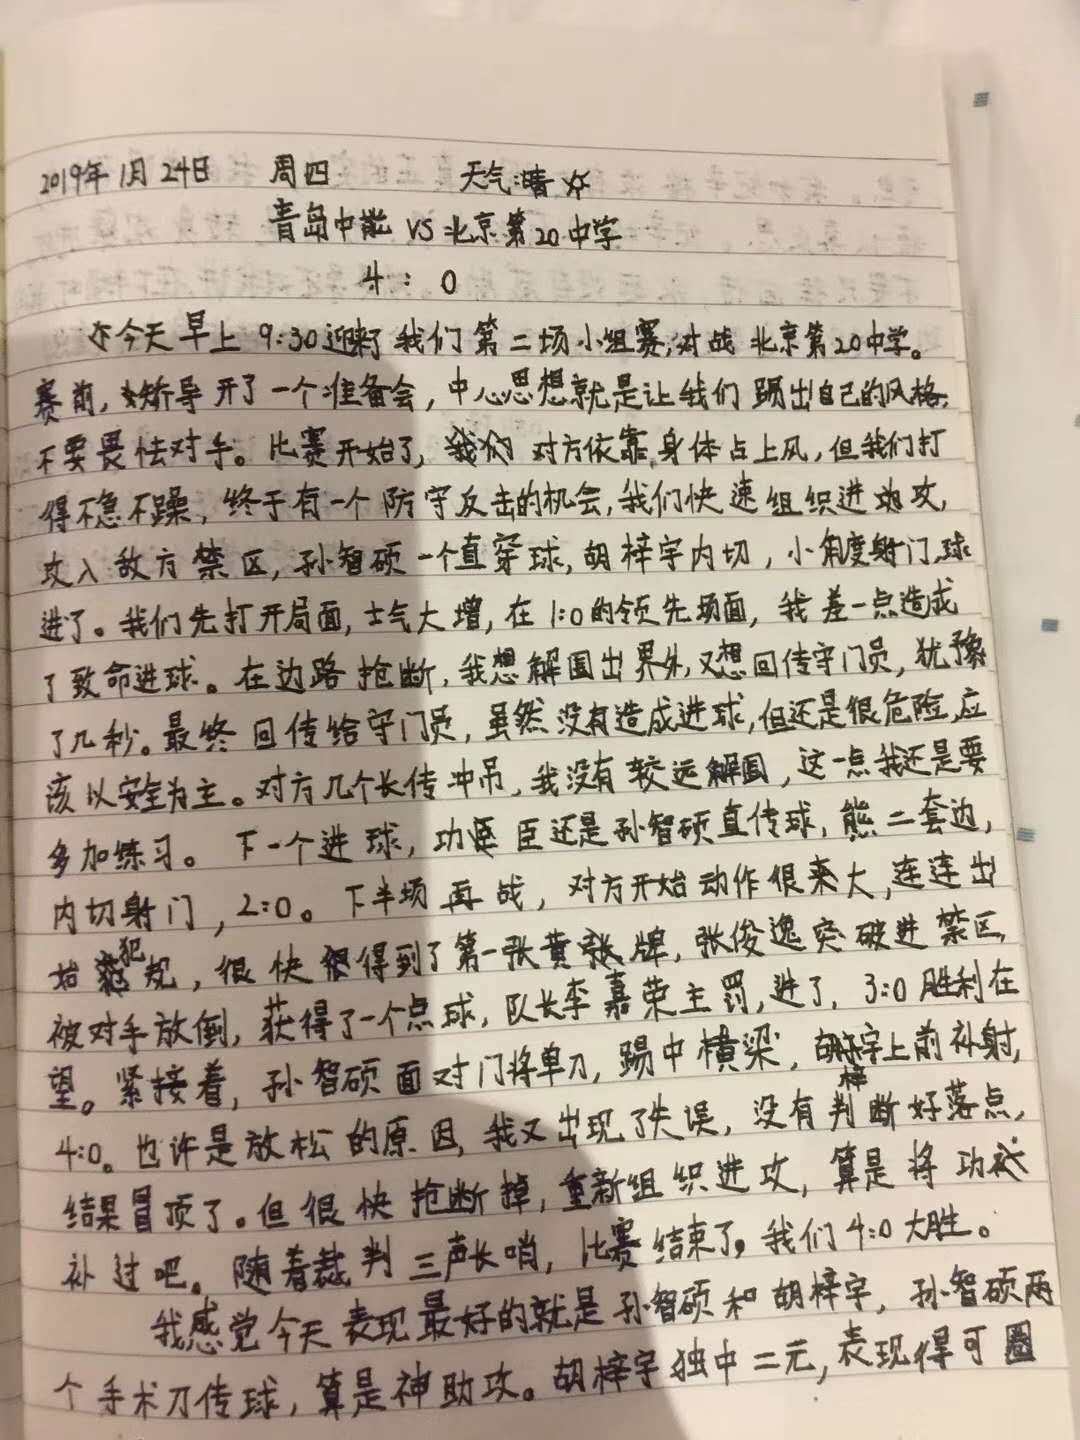 2019年1月24日 周四 天气:晴
青岛中能 VS 北京第20中学
4 : 0
今天早上 9:30迎来了我们第二场小组赛,对战北京第20中学。
赛前,矫导开了一个准备会,中心思想就是让我们踢出自己的风格,
不要畏怯对手。比赛开始了,对方依靠身体占上风,但我们打
得不急不躁,终于有一个防守反击的机会,我们快速组织进攻,
攻入敌方禁区,孙智硕一个直穿球,胡梓宇内切,小角度射门,球
进了。我们先打开局面,士气大增,在1:0的领先场面,我差一点造成
了致命进球。在边路抢断,我想解围出界外,又想回传守门员,犹豫
了几秒。最终回传给守门员,虽然没有造成进球,但还是很危险,应
该以安全为主。对方几个长传冲吊,我没有较远解围,这一点我还是要
多加练习。下一个进球,功臣还是孙智硕直传球,熊二套边,
内切射门,2:0。下半场再战,对方开始动作很来大,连连出
始犯规,很快得到了第一张黄牌,张俊逸突破进禁区,
被对手放倒,获得了一个点球,队长李嘉荣主罚,进了,3:0胜利在
望。紧接着,孙智硕面对门将单刀,踢中横梁,胡梓宇上前补射,
4:0。也许是放松的原因,我又出现了失误,没有判断好落点,
结果冒顶了。但很快抢断掉,重新组织进攻,算是将功
补过吧。随着裁判三声长哨,比赛结束了,我们4:0大胜。
我感觉今天表现最好的就是孙智硕和胡梓宇,孙智硕两
个手术刀传球,算是神助攻。胡梓宇独中二元,表现得可圈